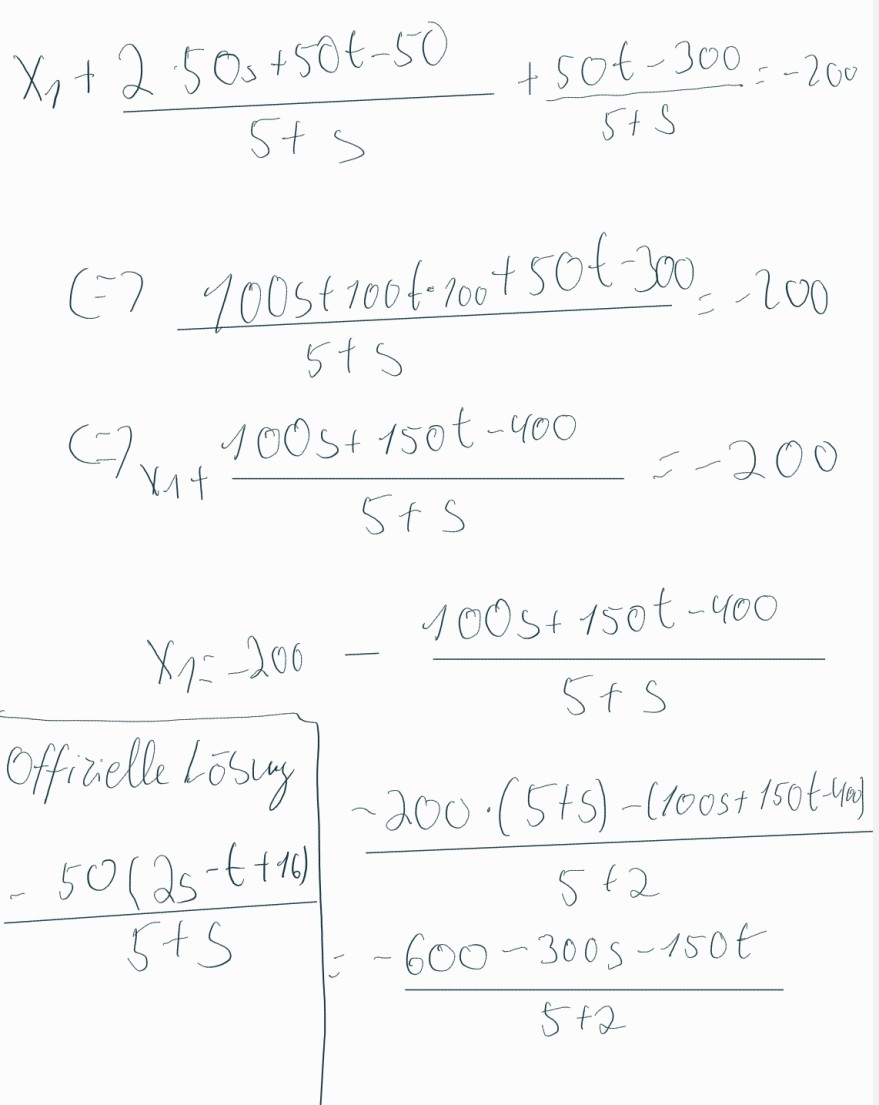 x₁ + (2·50s+50t-50)/(5+s) + (50t-300)/(5+s) = -200
(=) (100s+100t-100+50t-300)/(5+s) = -200
(=) x₁+ (100s+150t-400)/(5+s) = -200
x₁= -200 - (100s+150t-400)/(5+s)
Offizielle Lösung
- 50(2s-t+16)/(5+s)
(-200·(5+s)-(100s+150t-400))/(5+2)
= (-600-300s-150t)/(5+2)